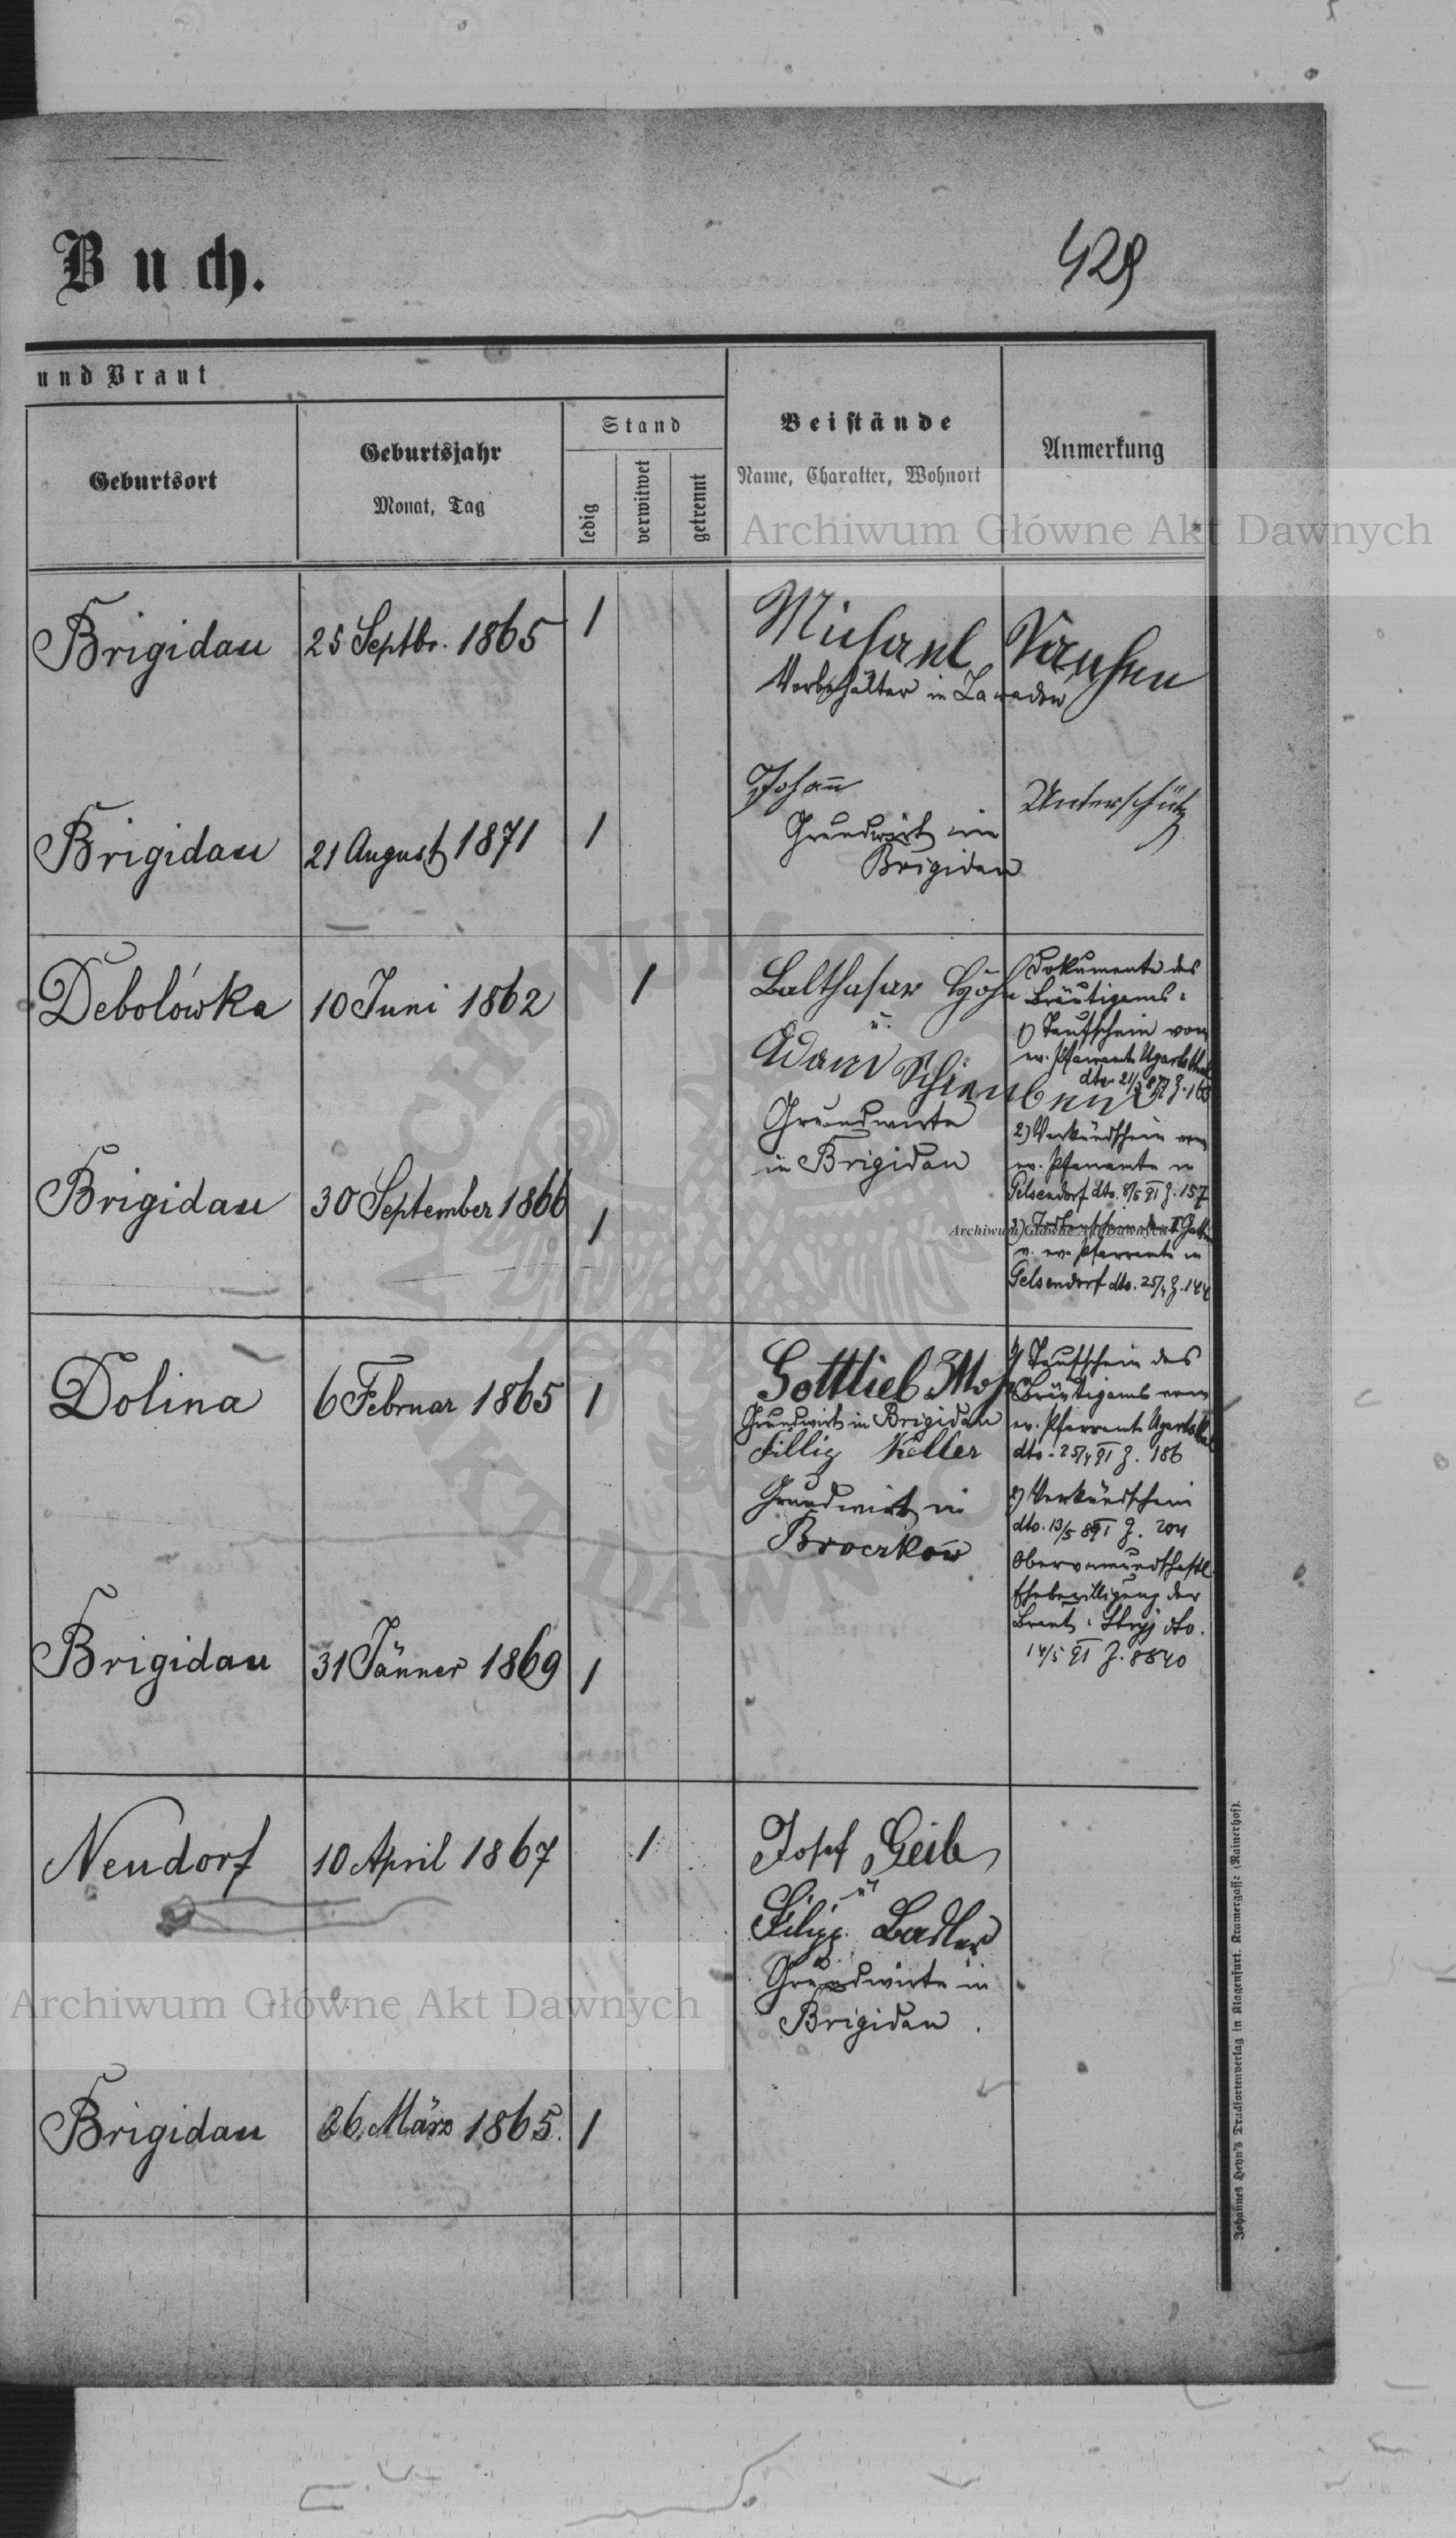 Buch.
429
und Braut
Geburtsort
Geburtsjahr
Monat, Tag
Stand
ledig
verwitwet
getrennt
Beistände
Name, Charakter, Wohnort
Anmerkung
Archiwum Główne Akt Dawnych
Brigidau
25 Septbr. 1865
1
Michael
Vorbehälter in Zawadow
Brigidau
21 August 1871
1
Johann Unterschütz
Grundwirt in
Brigidau
Debolówka
10 Juni 1862
1
Balthasar Höhn
u.
Adam
Grundwirte
in Brigidau
Dokumente des
Bräutigams:
1) Taufschein vom
ev. Pfarramte Ugartsthal
2) Verkündschein vom
ev. Pfarramte in
Gelsendorf dto. 8/5 91 Z. 157
v. ev. Pfarramte in
Gelsendorf dto. Z. 144
Brigidau
30 September 1866
1
Archiwum Główne Akt Dawnych
Dolina
6 Februar 1865
1
Gottlieb
Grundwirt in Brigidau
Fillip Keller
Grundwirt in
Broczkow
1) Taufschein des
Bräutigams vom
ev. Pfarramte Ugartsthal
dto. 25/4 91 Z. 186
2) Verkündschein
dto. 13/5 891 Z. 204
Obervormundschaftl.
Ehebewilligung der
Braut: Stryj dto.
14/5 91 Z. 8840
Brigidau
31 Jänner 1869
1
Neudorf
10 April 1867
1
Josef Geib
u
Filipp Badler
Grundwirte in
Brigidau.
Archiwum Główne Akt Dawnych
Brigidau
26. März 1865.
1
ARCHIWUM
AKT DAWNYCH
Johannes Heyn's Drucksortenverlag in Klagenfurt, Kramergasse (Rainerhof).